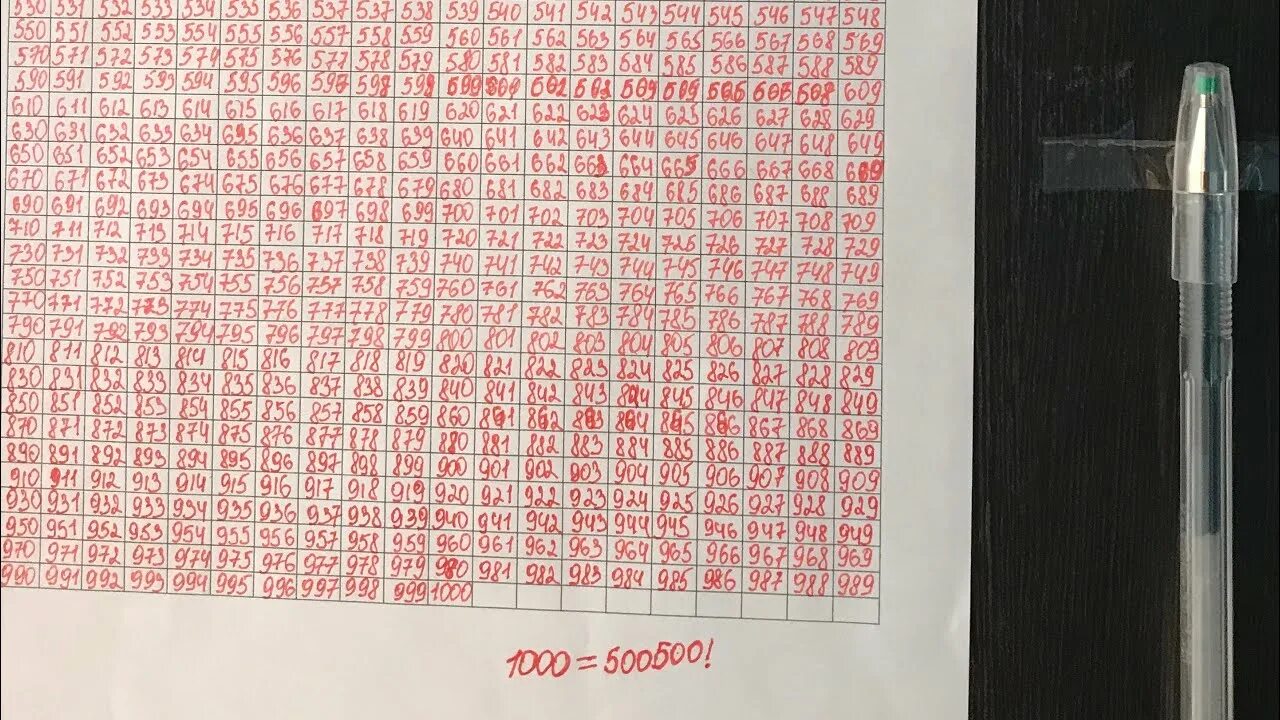 530 531 532 533 534 535 536 537 537 538 539 540 541 542 543 544 545 546 547 548
550 551 552 553 554 555 556 557 558 559 560 561 562 563 564 565 566 567 568 569
570 571 572 573 574 575 576 577 578 579 580 581 582 583 584 585 586 587 588 589
590 591 592 593 594 595 596 597 598 599 609
610 611 612 613 614 615 616 617 618 619 620 621 622 623 624 625 626 627 628 629
630 631 632 633 634 635 636 637 638 639 640 641 642 643 644 645 646 647 648 649
650 651 652 653 654 655 656 657 658 659 660 661 662 663 664 665 666 667 668 669
670 671 672 673 674 675 676 677 678 679 680 681 682 683 684 685 686 687 688 689
690 691 692 693 694 695 696 697 698 699 700 701 702 703 704 705 706 707 708 709
710 711 712 713 714 715 716 717 718 719 720 721 722 723 724 725 726 727 728 729
730 731 732 733 734 735 736 737 738 739 740 741 742 743 744 745 746 747 748 749
750 751 752 753 754 755 756 757 758 759 760 761 762 763 764 765 766 767 768 769
770 771 772 773 774 775 776 777 778 779 780 781 782 783 784 785 786 787 788 789
790 791 792 793 794 795 796 797 798 799 800 801 802 803 804 805 806 807 808 809
810 811 812 813 814 815 816 817 818 819 820 821 822 823 824 825 826 827 828 829
830 831 832 833 834 835 836 837 838 839 840 841 842 843 844 845 846 847 848 849
850 851 852 853 854 855 856 857 858 859 860 861 862 863 864 865 866 867 868 869
870 871 872 873 874 875 876 877 878 879 880 881 882 883 884 885 886 887 888 889
890 891 892 893 894 895 896 897 898 899 900 901 902 903 904 905 906 907 908 909
910 911 912 913 914 915 916 917 918 919 920 921 922 923 924 925 926 927 928 929
930 931 932 933 934 935 936 937 938 939 940 941 942 943 944 945 946 947 948 949
950 951 952 953 954 955 956 957 958 959 960 961 962 963 964 965 966 967 968 969
970 971 972 973 974 975 976 977 978 979 980 981 982 983 984 985 986 987 988 989
990 991 992 993 994 995 996 997 998 999 1000
1000=500500!